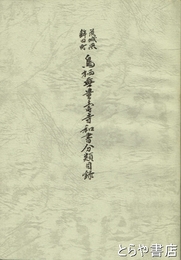 茨城県
鉾田町
鳥栖無量寿寺和書分類目録
とらや書店